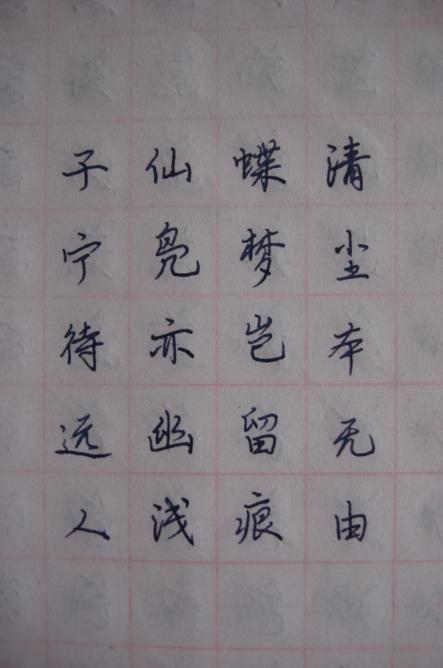 清尘本无由
蝶梦岂留痕
仙凫亦幽浅
子宁待远人